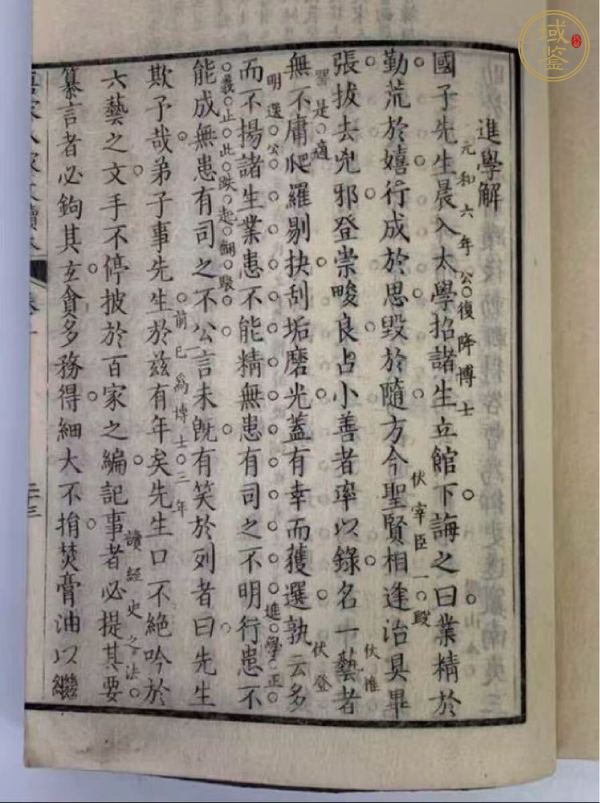 進學解
元和六年公復降博士
國子先生晨入太學招諸生立館下誨之曰業精於
勤荒於嬉行成於思毀於隨方今聖賢相逢治具畢
伏宰臣一段
張拔去兇邪登崇畯良占小善者率以錄名一藝者
伏推
無不庸爬羅剔抉刮垢磨光蓋有幸而獲選孰云多
伏登
明選公
而不揚諸生業患不能精無患有司之不明行患不
進學正
能成無患有司之不公言未既有笑於列者曰先生
欺予哉弟子事先生於茲有年矣先生口不絕吟於
前已為博士三年
六藝之文手不停披於百家之編記事者必提其要
讀經史之法
纂言者必鉤其玄貪多務得細大不捐焚膏油以繼
域鉴